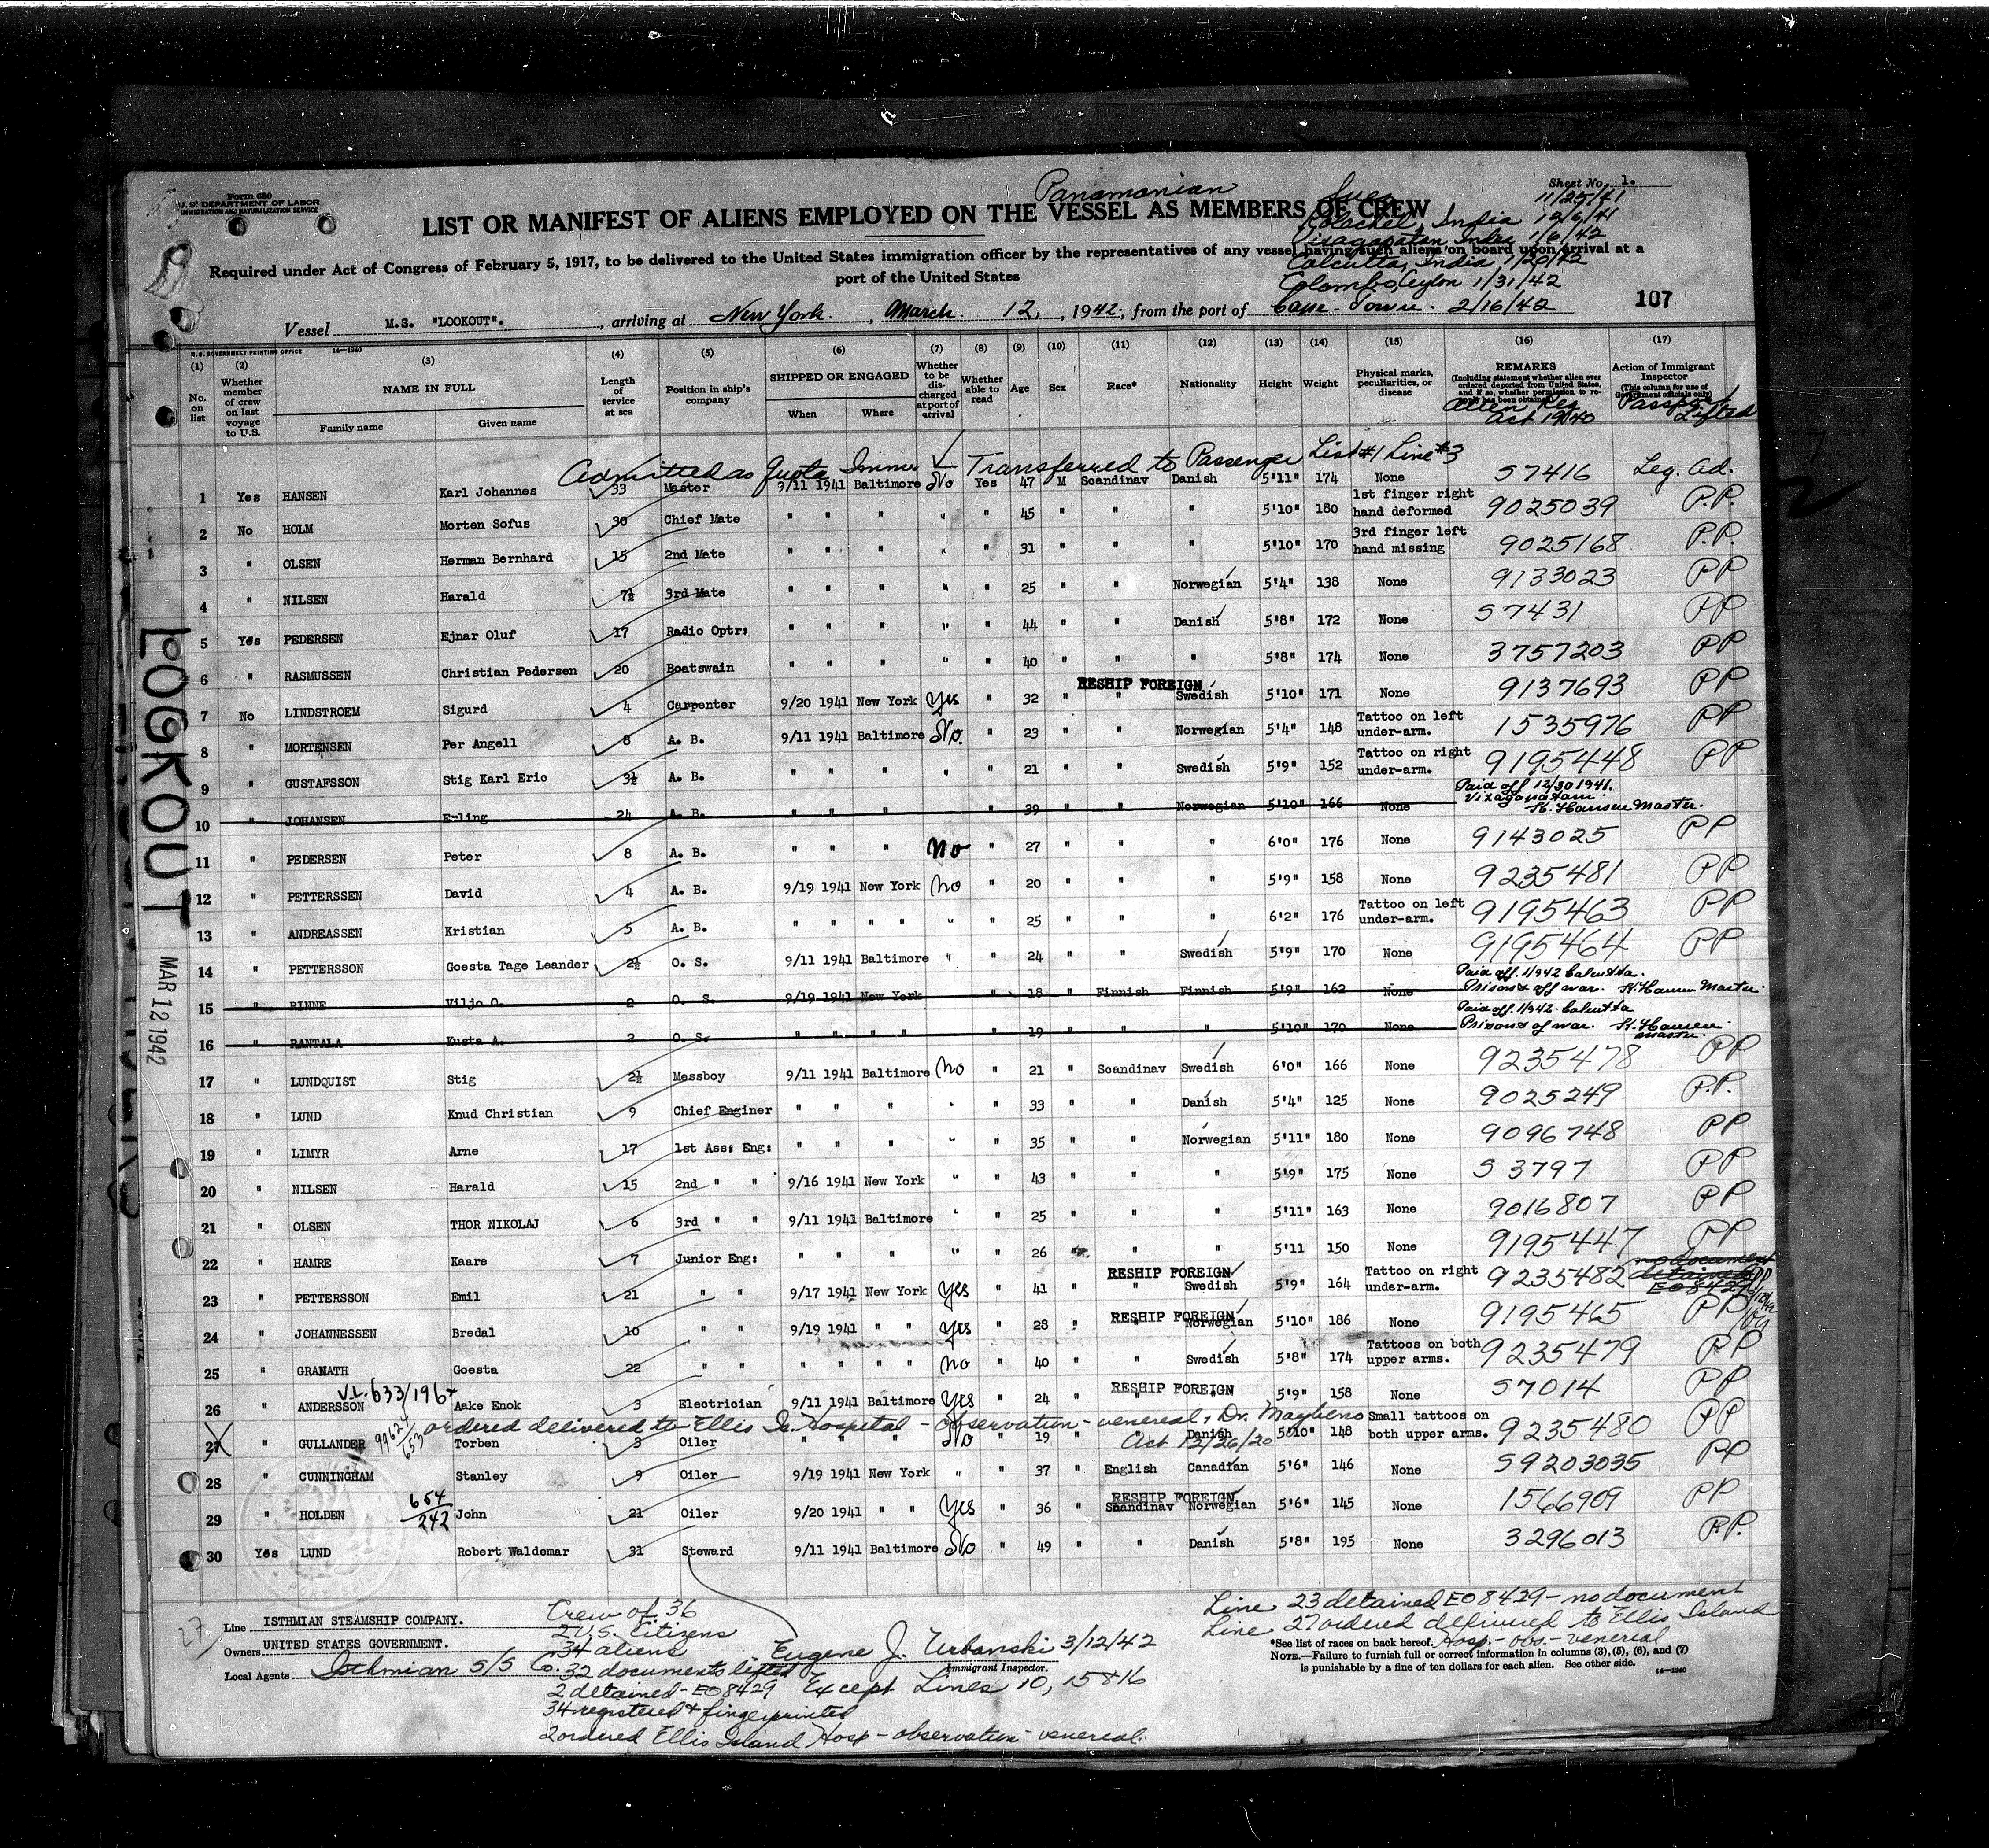 Form 680
U.S. DEPARTMENT OF LABOR
IMMIGRATION AND NATURALIZATION SERVICE
Sheet No. 1.
Panamanian
Suez 11/25/41
LIST OR MANIFEST OF ALIENS EMPLOYED ON THE VESSEL AS MEMBERS OF CREW
Colachel, India 12/6/41
Vizagapatan India 1/6/42
Required under Act of Congress of February 5, 1917, to be delivered to the United States immigration officer by the representatives of any vessel having such aliens on board upon arrival at a
port of the United States
Calcutta, India 1/20/42
Colombo, Ceylon 1/31/42
107
Vessel M.S. "LOOKOUT"., arriving at New York., March. 12,, 1942, from the port of Cape-Town. 2/16/42
U.S. GOVERNMENT PRINTING OFFICE 14—1240
(1) (2) (3) (4) (5) (6) (7) (8) (9) (10) (11) (12) (13) (14) (15) (16) (17)
No. on list
Whether member of crew on last voyage to U.S.
NAME IN FULL
Family name Given name
Length of service at sea
Position in ship's company
SHIPPED OR ENGAGED
When Where
Whether to be discharged at port of arrival
Whether able to read
Age Sex Race* Nationality Height Weight
Physical marks, peculiarities, or disease
REMARKS
(Including statement whether alien ever ordered deported from United States, and if so, whether permission to reapply has been obtained)
Alien Reg Act 1940
Action of Immigrant Inspector
(This column for use of Government officials only)
Passport Lifted
Admitted as Quota Imm. Transferred to Passenger List #1 Line #3
1 Yes HANSEN Karl Johannes 33 Master 9/11 1941 Baltimore No Yes 47 M Scandinav Danish 5'11" 174 None 57416 Leg. Ad.
2 No HOLM Morten Sofus 30 Chief Mate " " " " " 45 " " " 5'10" 180 1st finger right hand deformed 9025039 P.P.
3 " OLSEN Herman Bernhard 15 2nd Mate " " " " " 31 " " " 5'10" 170 3rd finger left hand missing 9025168 P.P.
4 " NILSEN Harald 7½ 3rd Mate " " " " " 25 " " Norwegian 5'4" 138 None 9133023 PP
5 Yes PEDERSEN Ejnar Oluf 17 Radio Optr: " " " " " 44 " " Danish 5'8" 172 None 57431 PP
6 " RASMUSSEN Christian Pedersen 20 Boatswain " " " " " 40 " " " 5'8" 174 None 3757203 PP
RESHIP FOREIGN
7 No LINDSTROEM Sigurd 4 Carpenter 9/20 1941 New York Yes " 32 " " Swedish 5'10" 171 None 9137693 PP
8 " MORTENSEN Per Angell 8 A. B. 9/11 1941 Baltimore No. " 23 " " Norwegian 5'4" 148 Tattoo on left under-arm. 1535976 PP
9 " GUSTAFSSON Stig Karl Eric 3½ A. B. " " " " " 21 " " Swedish 5'9" 152 Tattoo on right under-arm. 9195448 PP
10 " JOHANSEN Erling 24 A. B. " " " " 39 " " Norwegian 5'10" 166 None Paid off 12/30 1941. Vizagapatam. K. Hansen Master.
11 " PEDERSEN Peter 8 A. B. " " " No " 27 " " " 6'0" 176 None 9143025 PP
12 " PETTERSSEN David 4 A. B. 9/19 1941 New York No " 20 " " " 5'9" 158 None 9235481 PP
13 " ANDREASSEN Kristian 5 A. B. " " " " " " 25 " " " 6'2" 176 Tattoo on left under-arm. 9195463 PP
14 " PETTERSSON Goesta Tage Leander 2½ O. S. 9/11 1941 Baltimore " " 24 " " Swedish 5'9" 170 None 9195464 PP
15 " RINNE Viljo O. 2 O. S. 9/19 1941 New York " 18 " Finnish Finnish 5'9" 162 None Paid off. 1/942 Calcutta. Prisons off war. K. Hansen Master.
16 " RANTALA Kusta A. 2 O. S. " " " " " 19 " " " 5'10" 170 None Paid off. 1/942. Calcutta Prisons of war. K. Hansen Master.
17 " LUNDQUIST Stig 2½ Messboy 9/11 1941 Baltimore No " 21 " Scandinav Swedish 6'0" 166 None 9235478 PP
18 " LUND Knud Christian 9 Chief Enginer " " " " " 33 " " Danish 5'4" 125 None 9025249 P.P.
19 " LIMYR Arne 17 1st Ass: Eng: " " " " " 35 " " Norwegian 5'11" 180 None 9096748 PP
20 " NILSEN Harald 15 2nd " " 9/16 1941 New York " " 43 " " " 5'9" 175 None 53797 PP
21 " OLSEN THOR NIKOLAJ 6 3rd " " 9/11 1941 Baltimore " " 25 " " " 5'11" 163 None 9016807 PP
22 " HAMRE Kaare 7 Junior Eng: " " " " " 26 " " 5'11 150 None 9195447 PP
RESHIP FOREIGN
23 " PETTERSSON Emil 21 " " 9/17 1941 New York Yes " 41 " " Swedish 5'9" 164 Tattoo on right under-arm. 9235482 no document detained EO8429 PP
RESHIP FOREIGN
24 " JOHANNESSEN Bredal 10 " " 9/19 1941 " " Yes " 28 " Norwegian 5'10" 186 None 9195465 PP
25 " GRANATH Goesta 22 " " " " " " No " 40 " " Swedish 5'8" 174 Tattoos on both upper arms. 9235479 PP
V.L. 633/196
RESHIP FOREIGN
26 " ANDERSSON Aake Enok 3 Electrician 9/11 1941 Baltimore Yes " 24 " " " 5'9" 158 None 57014 PP
ordered delivered to Ellis Is. Hospital - observation - venereal,
99624/653
27 " GULLANDER Torben 3 Oiler " " " No " 19 " Danish 5'10" 148 Small tattoos on both upper arms. 9235480 PP
Act 12/26/20
28 " CUNNINGHAM Stanley 9 Oiler 9/19 1941 New York " " 37 " English Canadian 5'6" 146 None 59203035 PP
654/242
RESHIP FOREIGN
29 " HOLDEN John 21 Oiler 9/20 1941 " " Yes " 36 " Scandinav Norwegian 5'6" 145 None 1566909 PP
30 Yes LUND Robert Waldemar 31 Steward 9/11 1941 Baltimore No " 49 " " Danish 5'8" 195 None 3296013 P.P.
LOOKOUT
MAR 12 1942
27
Line ISTHMIAN STEAMSHIP COMPANY.
Owners UNITED STATES GOVERNMENT.
Local Agents Isthmian S/S Co.
Crew of 36
2 U.S. Citizens
34 aliens
32 documents lifted
2 detained - EO8429 Except Lines 10, 15 & 16
34 registered & fingerprinted
2 ordered Ellis Island Hosp - observation - venereal.
Eugene J. Urbanski 3/12/42
Immigrant Inspector.
Line 23 detained EO8429 - no document
Line 27 ordered delivered to Ellis Island
Hosp. - obs. - venereal
*See list of races on back hereof.
NOTE.—Failure to furnish full or correct information in columns (3), (5), (6), and (7)
is punishable by a fine of ten dollars for each alien. See other side. 14—1240